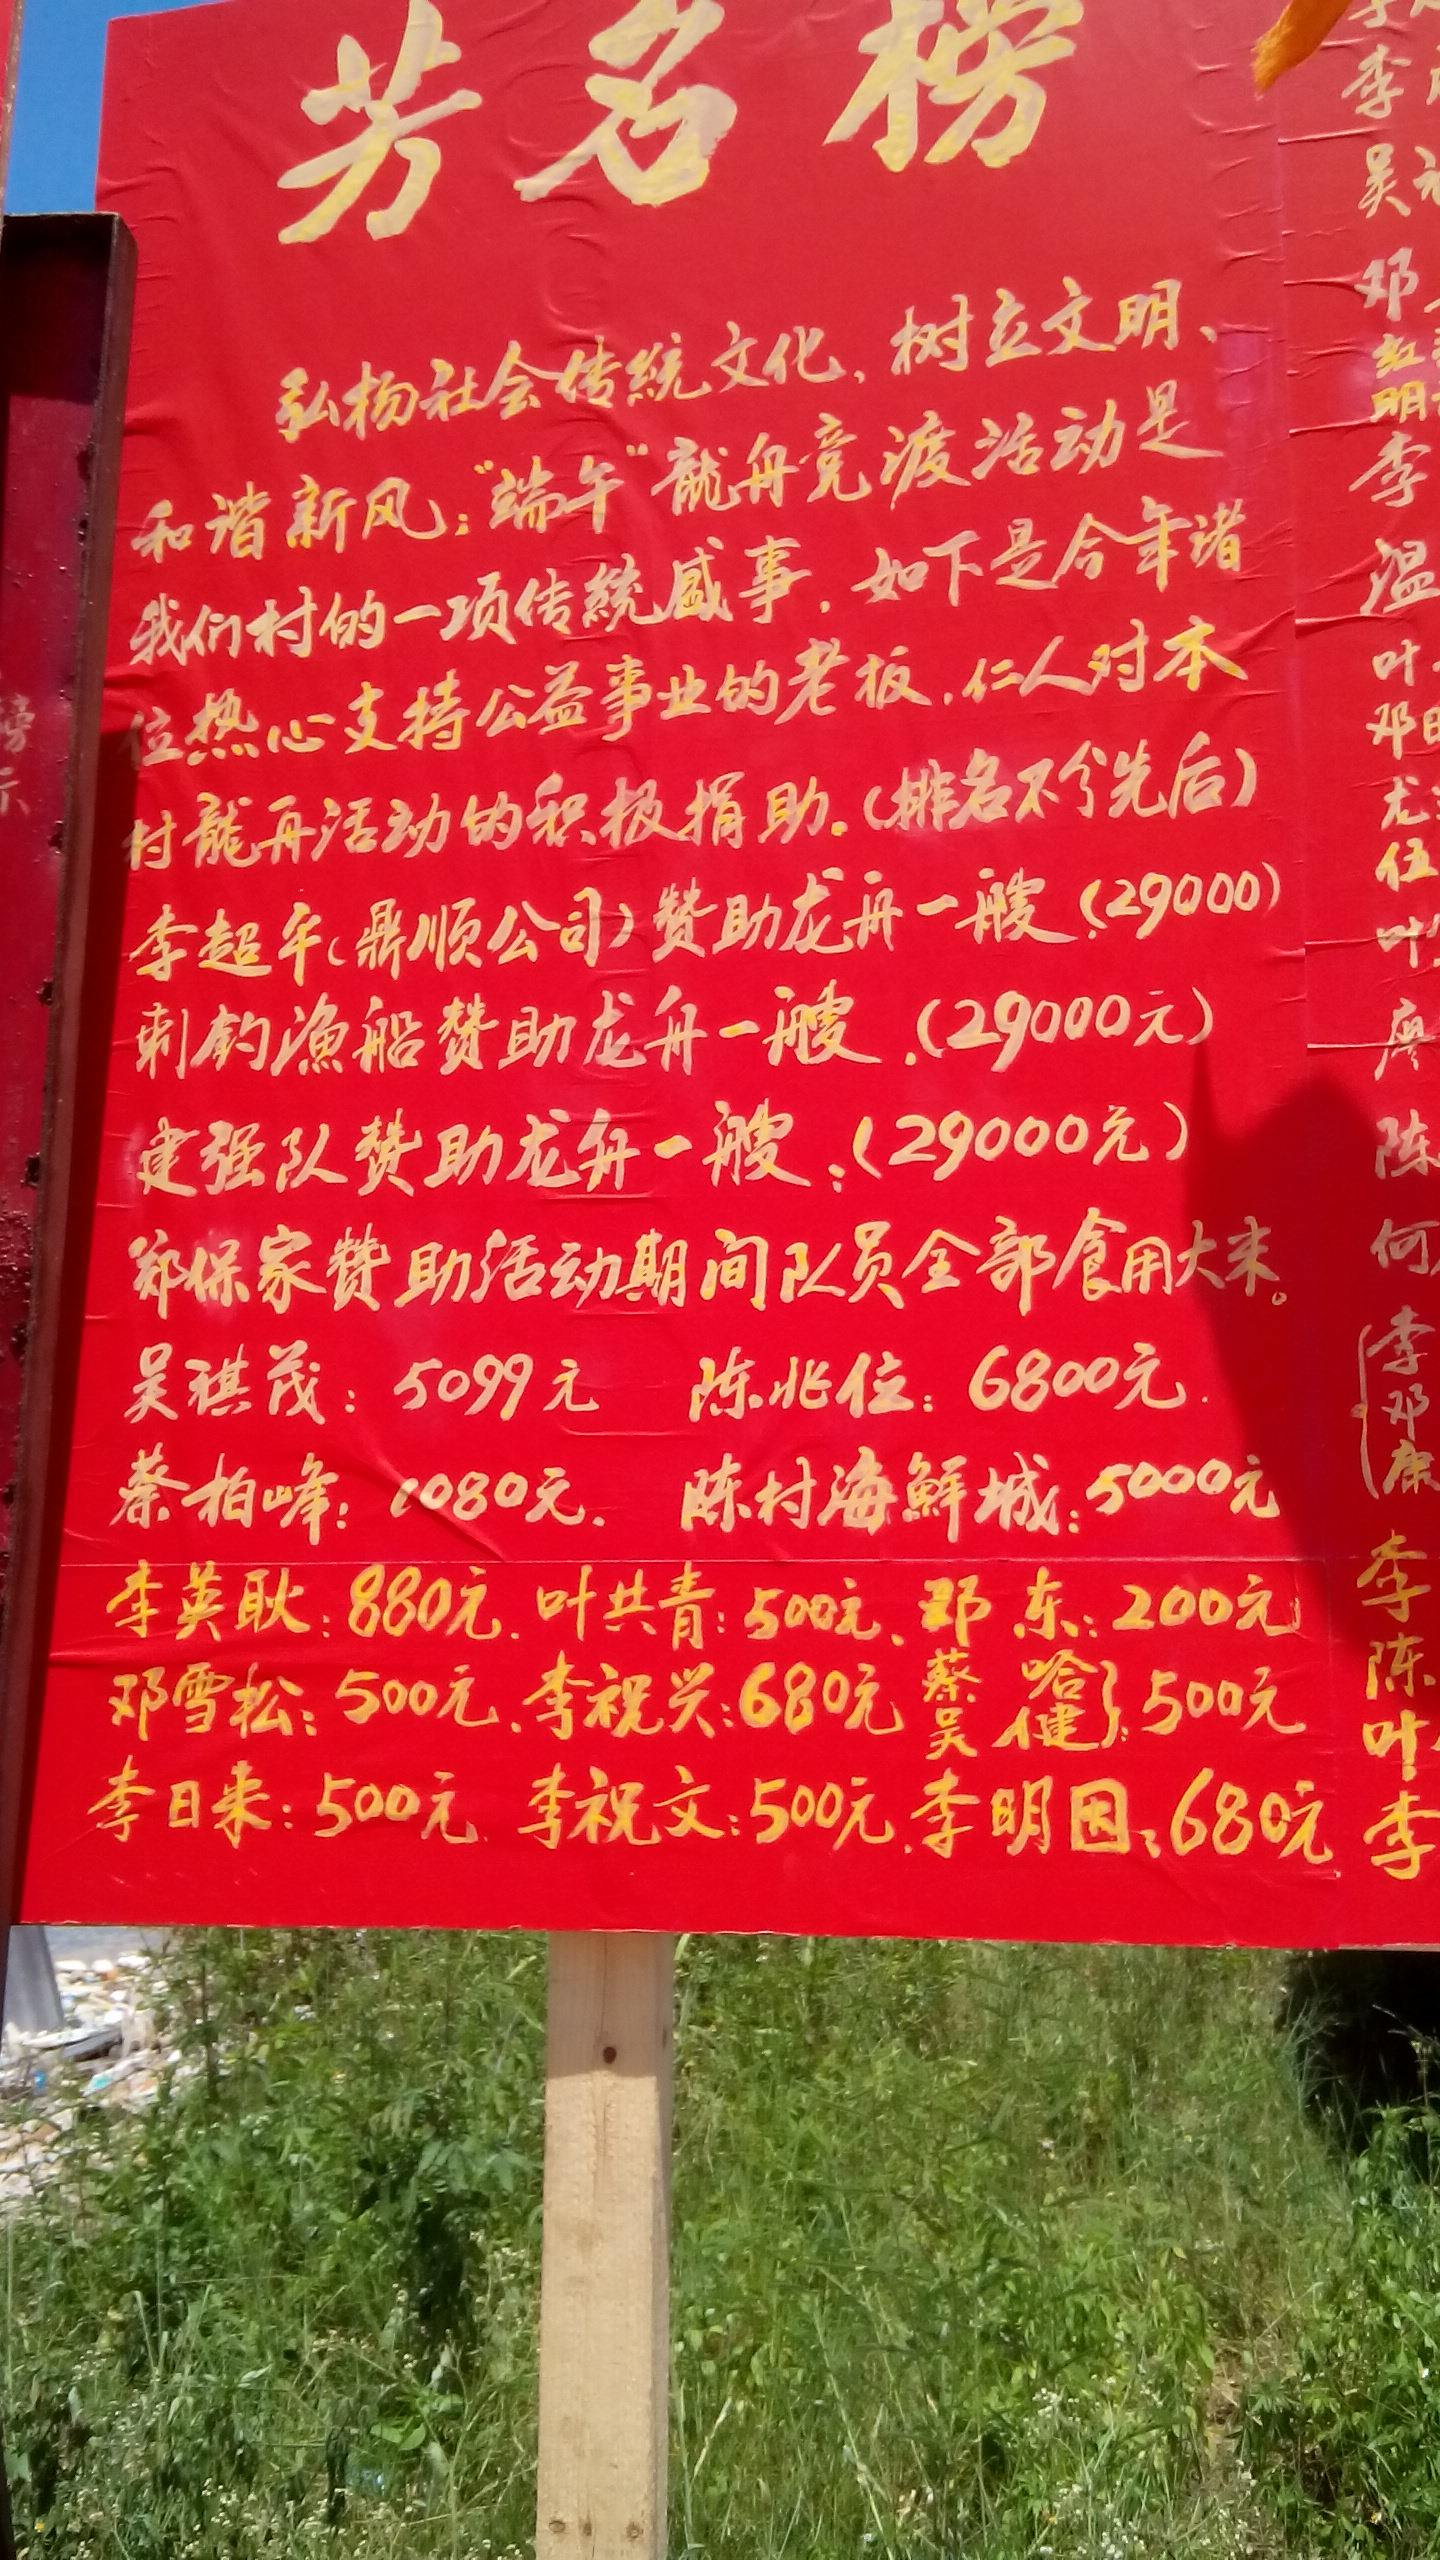 芳名榜
弘杨社会传統文化，树立文明、
和谐新风；"端午"龍舟竞渡活动是
我们村的一项传統盛事，如下是今年诸
位热心支持公益事业的老板，仁人对本
村龍舟活动的积极捐助。（排名不分先后）
李超年（鼎顺公司）赞助龙舟一艘：（29000）
刺钓漁船赞助龙舟一艘，（29000元）
建强队赞助龙舟一艘：（29000元）
郑保家赞助活动期间队员全部食用大米。
吴琪茂：5099元 陈兆位：6800元．
蔡柏峰：1080元． 陈村海鲜城：5000元
李英耿：880元．叶共青：500元、邓东：200元
邓雪松：500元．李祝兴：680元 蔡哈 吴健｝：500元
李日来：500元．李祝文：500元．李明因：680元
李
吴
邓
红
明
李
温
叶
邓日
尤
伍
叶
廖
陈
何
李
邓
康
李
陈
叶
李